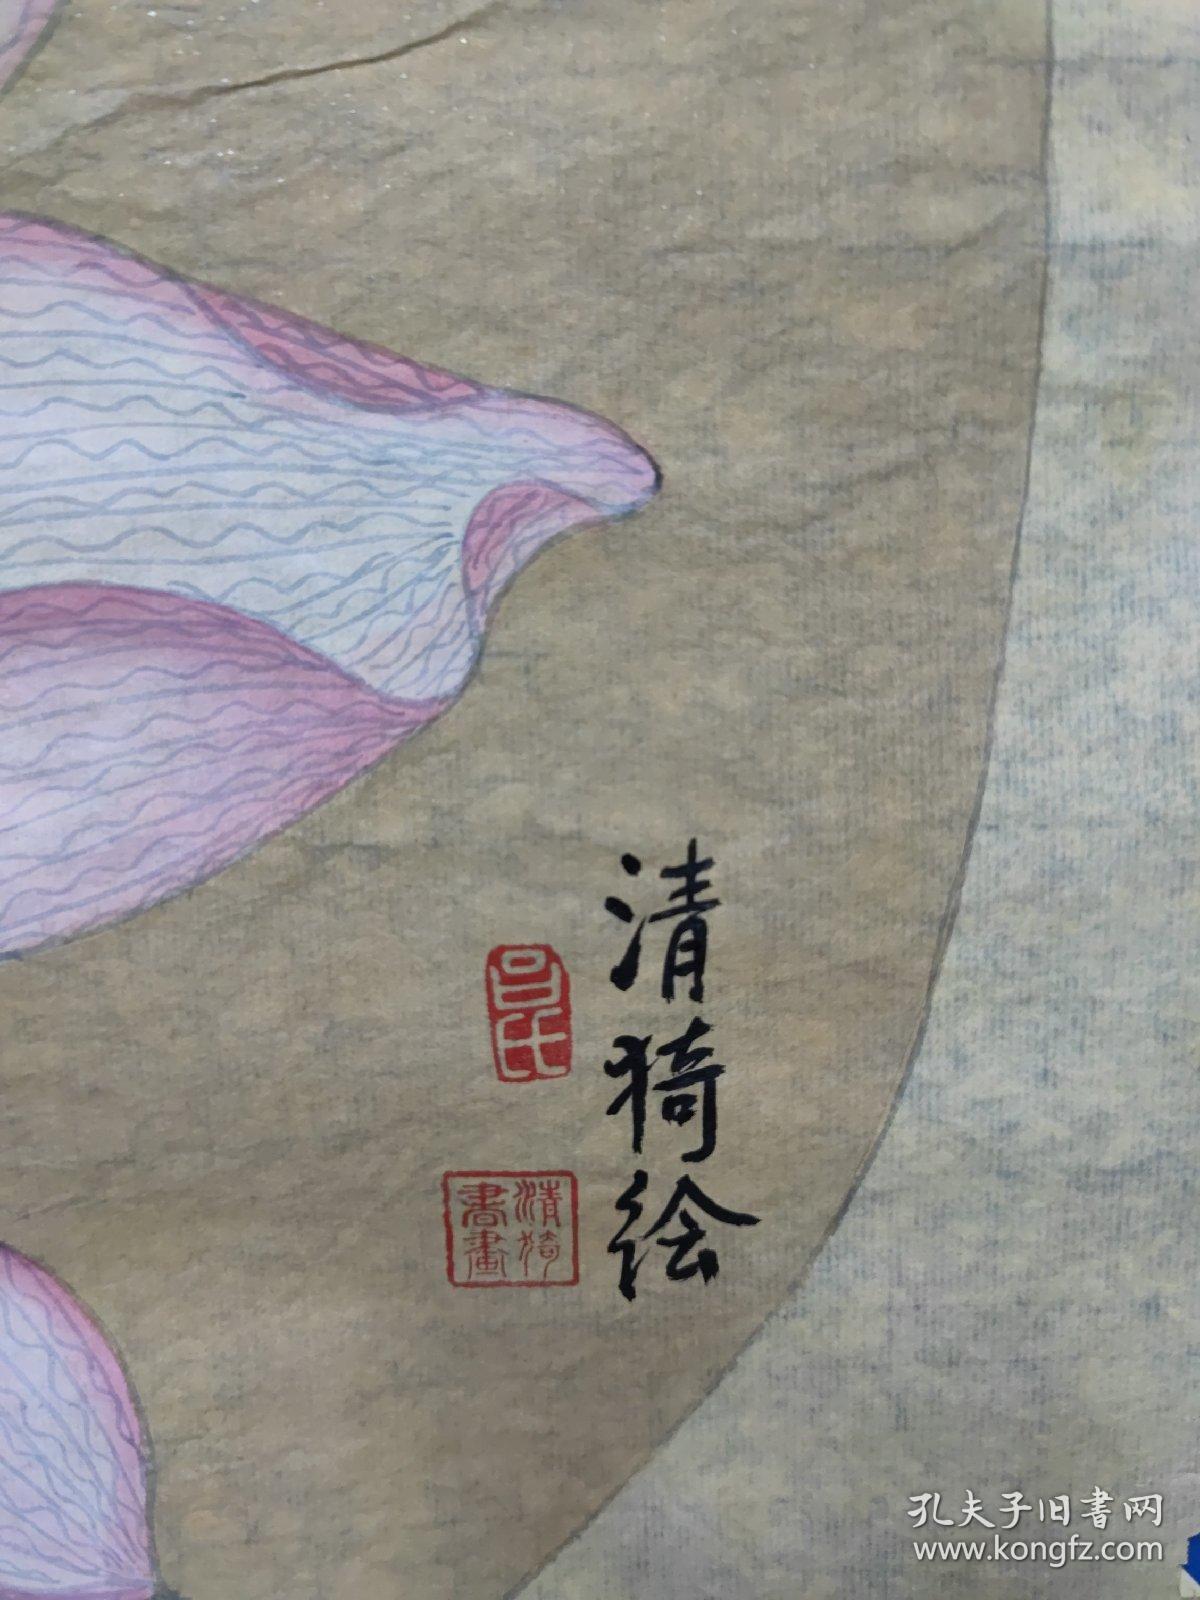 清猗绘
吕氏
清猗
書畫
孔夫子旧書网
www.kongfz.com